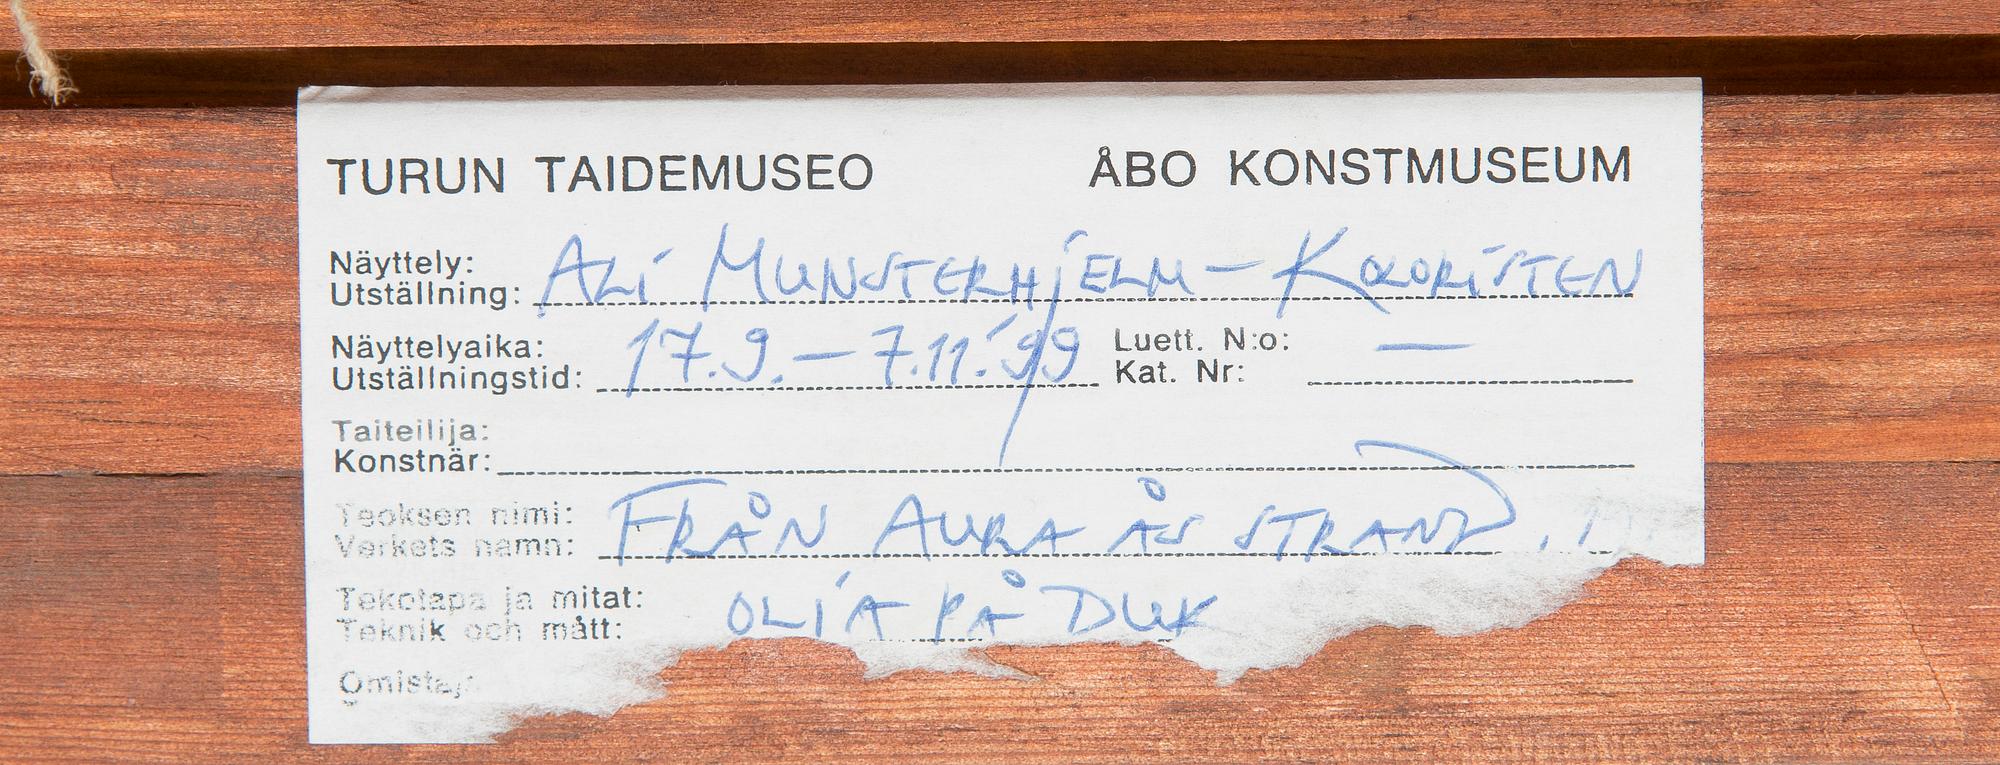 TURUN TAIDEMUSEO ÅBO KONSTMUSEUM
Näyttely: 
Utställning: ALI MUNSTERHJELM - KOLORISTEN
Näyttelyaika: Luett. N:o:
Utställningstid: 17.9. - 7.11.'99 Kat. Nr: —
Taiteilija:
Konstnär:
Teoksen nimi:
Verkets namn: FRÅN AURA ÅS STRAND,
Tekotapa ja mitat:
Teknik och mått: OLJA PÅ DUK
Omistaja